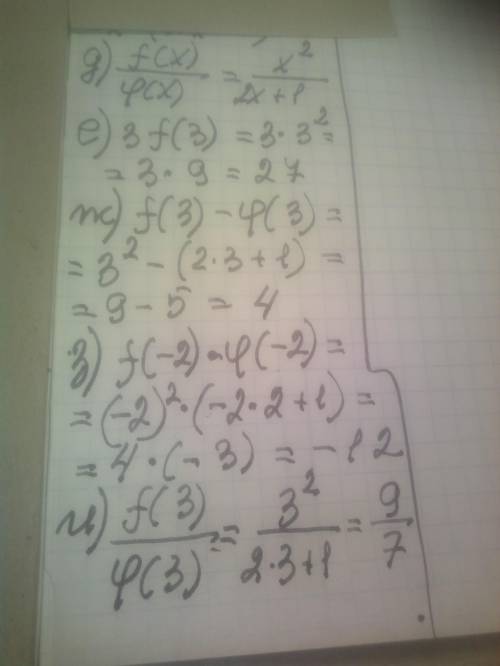 д) f(x)/φ(x) = x²/2x+1
е) 3 f(3) = 3·3² =
= 3·9 = 27
ж) f(3) - φ(3) =
= 3² - (2·3+1) =
= 9 - 5 = 4
з) f(-2)·φ(-2) =
= (-2)²·(-2·2+1) =
= 4·(-3) = -12
и) f(3)/φ(3) = 3²/2·3+1 = 9/7